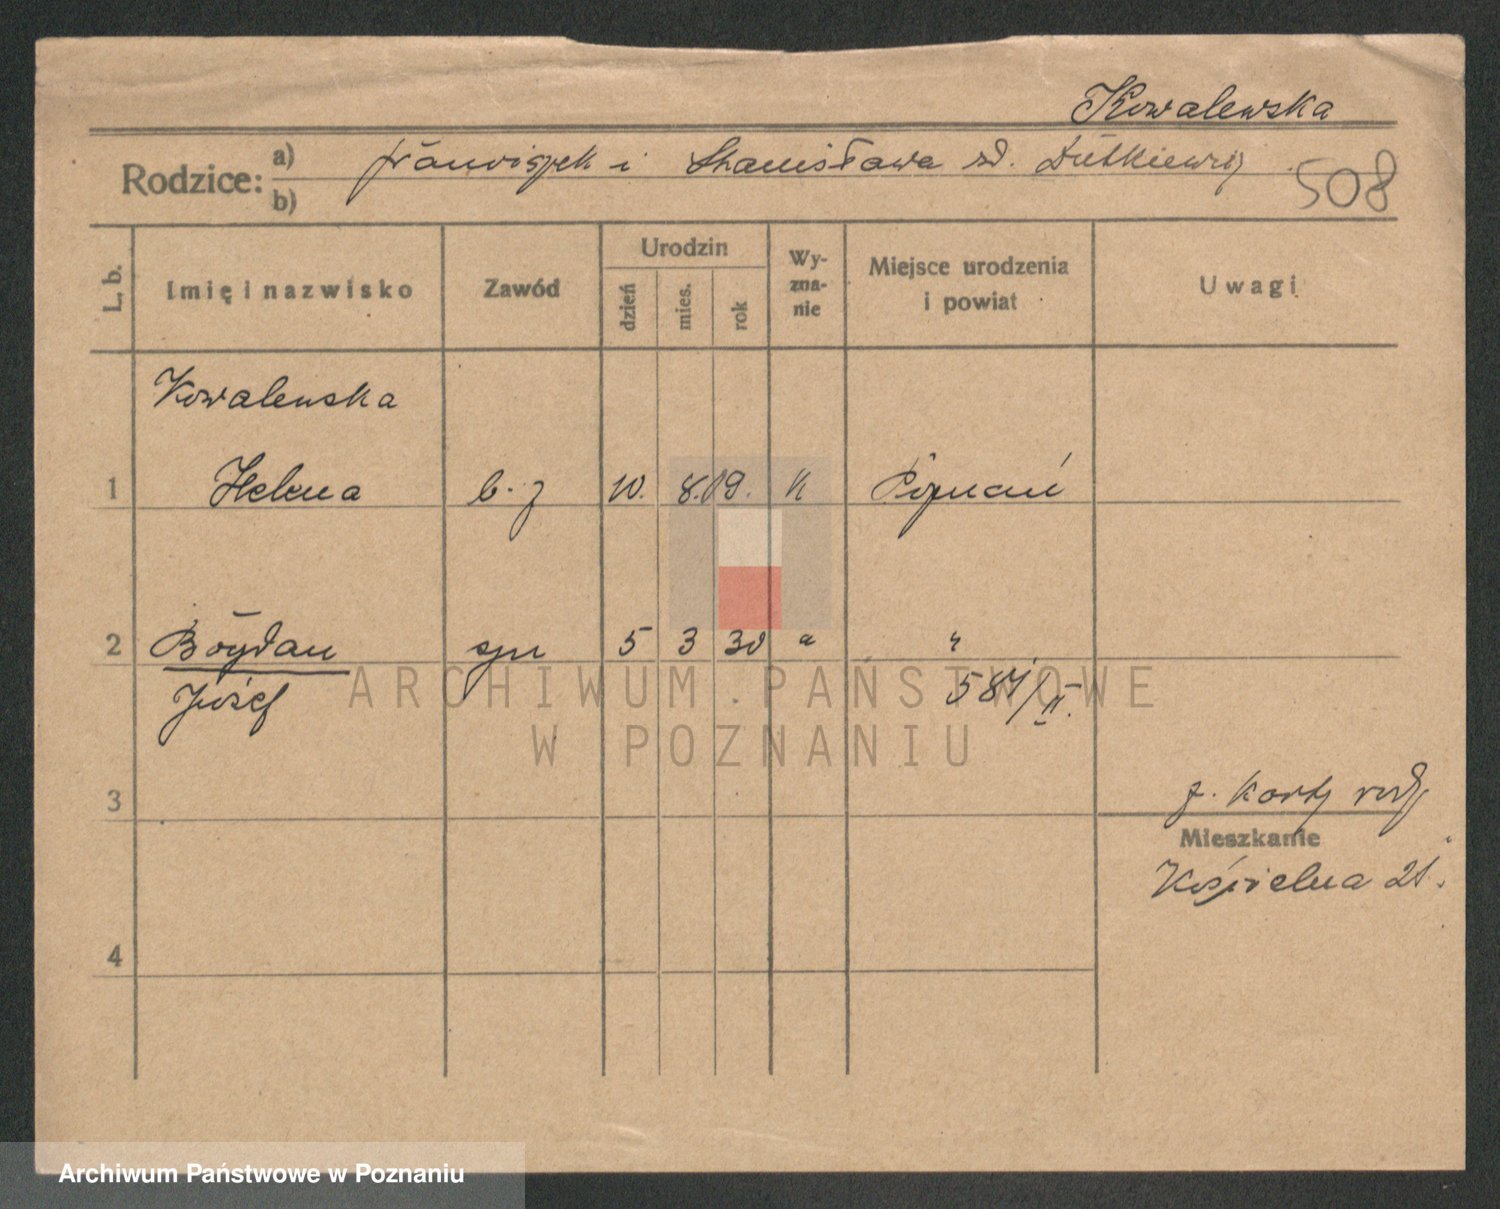 Kowalewska
Rodzice: a) Franciszek i Stanisława zd. Dutkiewicz
b)
508
L. b. Imię i nazwisko Zawód Urodzin dzień mies. rok Wy-zna-nie Miejsce urodzenia i powiat Uwagi
Kowalewska
1 Helena b. z 10. 8. 09. K Poznań
2 Bogdan syn 5 3 30 " "
Józef 587/II.
3 z. karty rodz
Mieszkanie
Kościelna 21.
4
ARCHIWUM PAŃSTWOWE
W POZNANIU
Archiwum Państwowe w Poznaniu